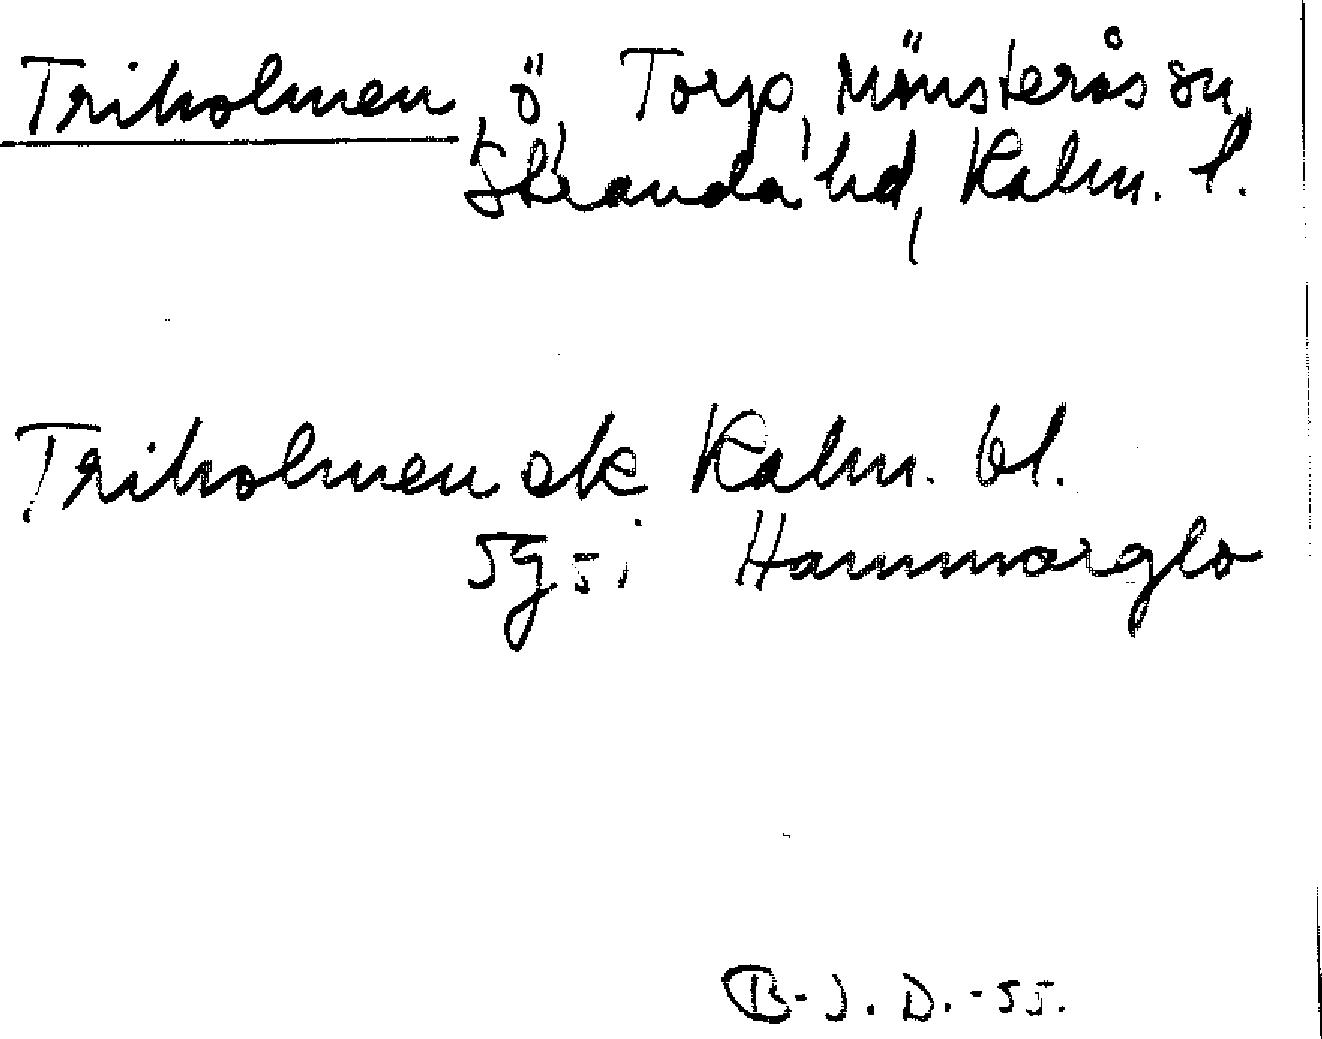 Triholmen, ö, Torp, Mönsterås sn,
Stranda hd, Kalm. l.
Triholmen ek Kalm. bl.
5g5i Hammarglo
B-J.D.-55.